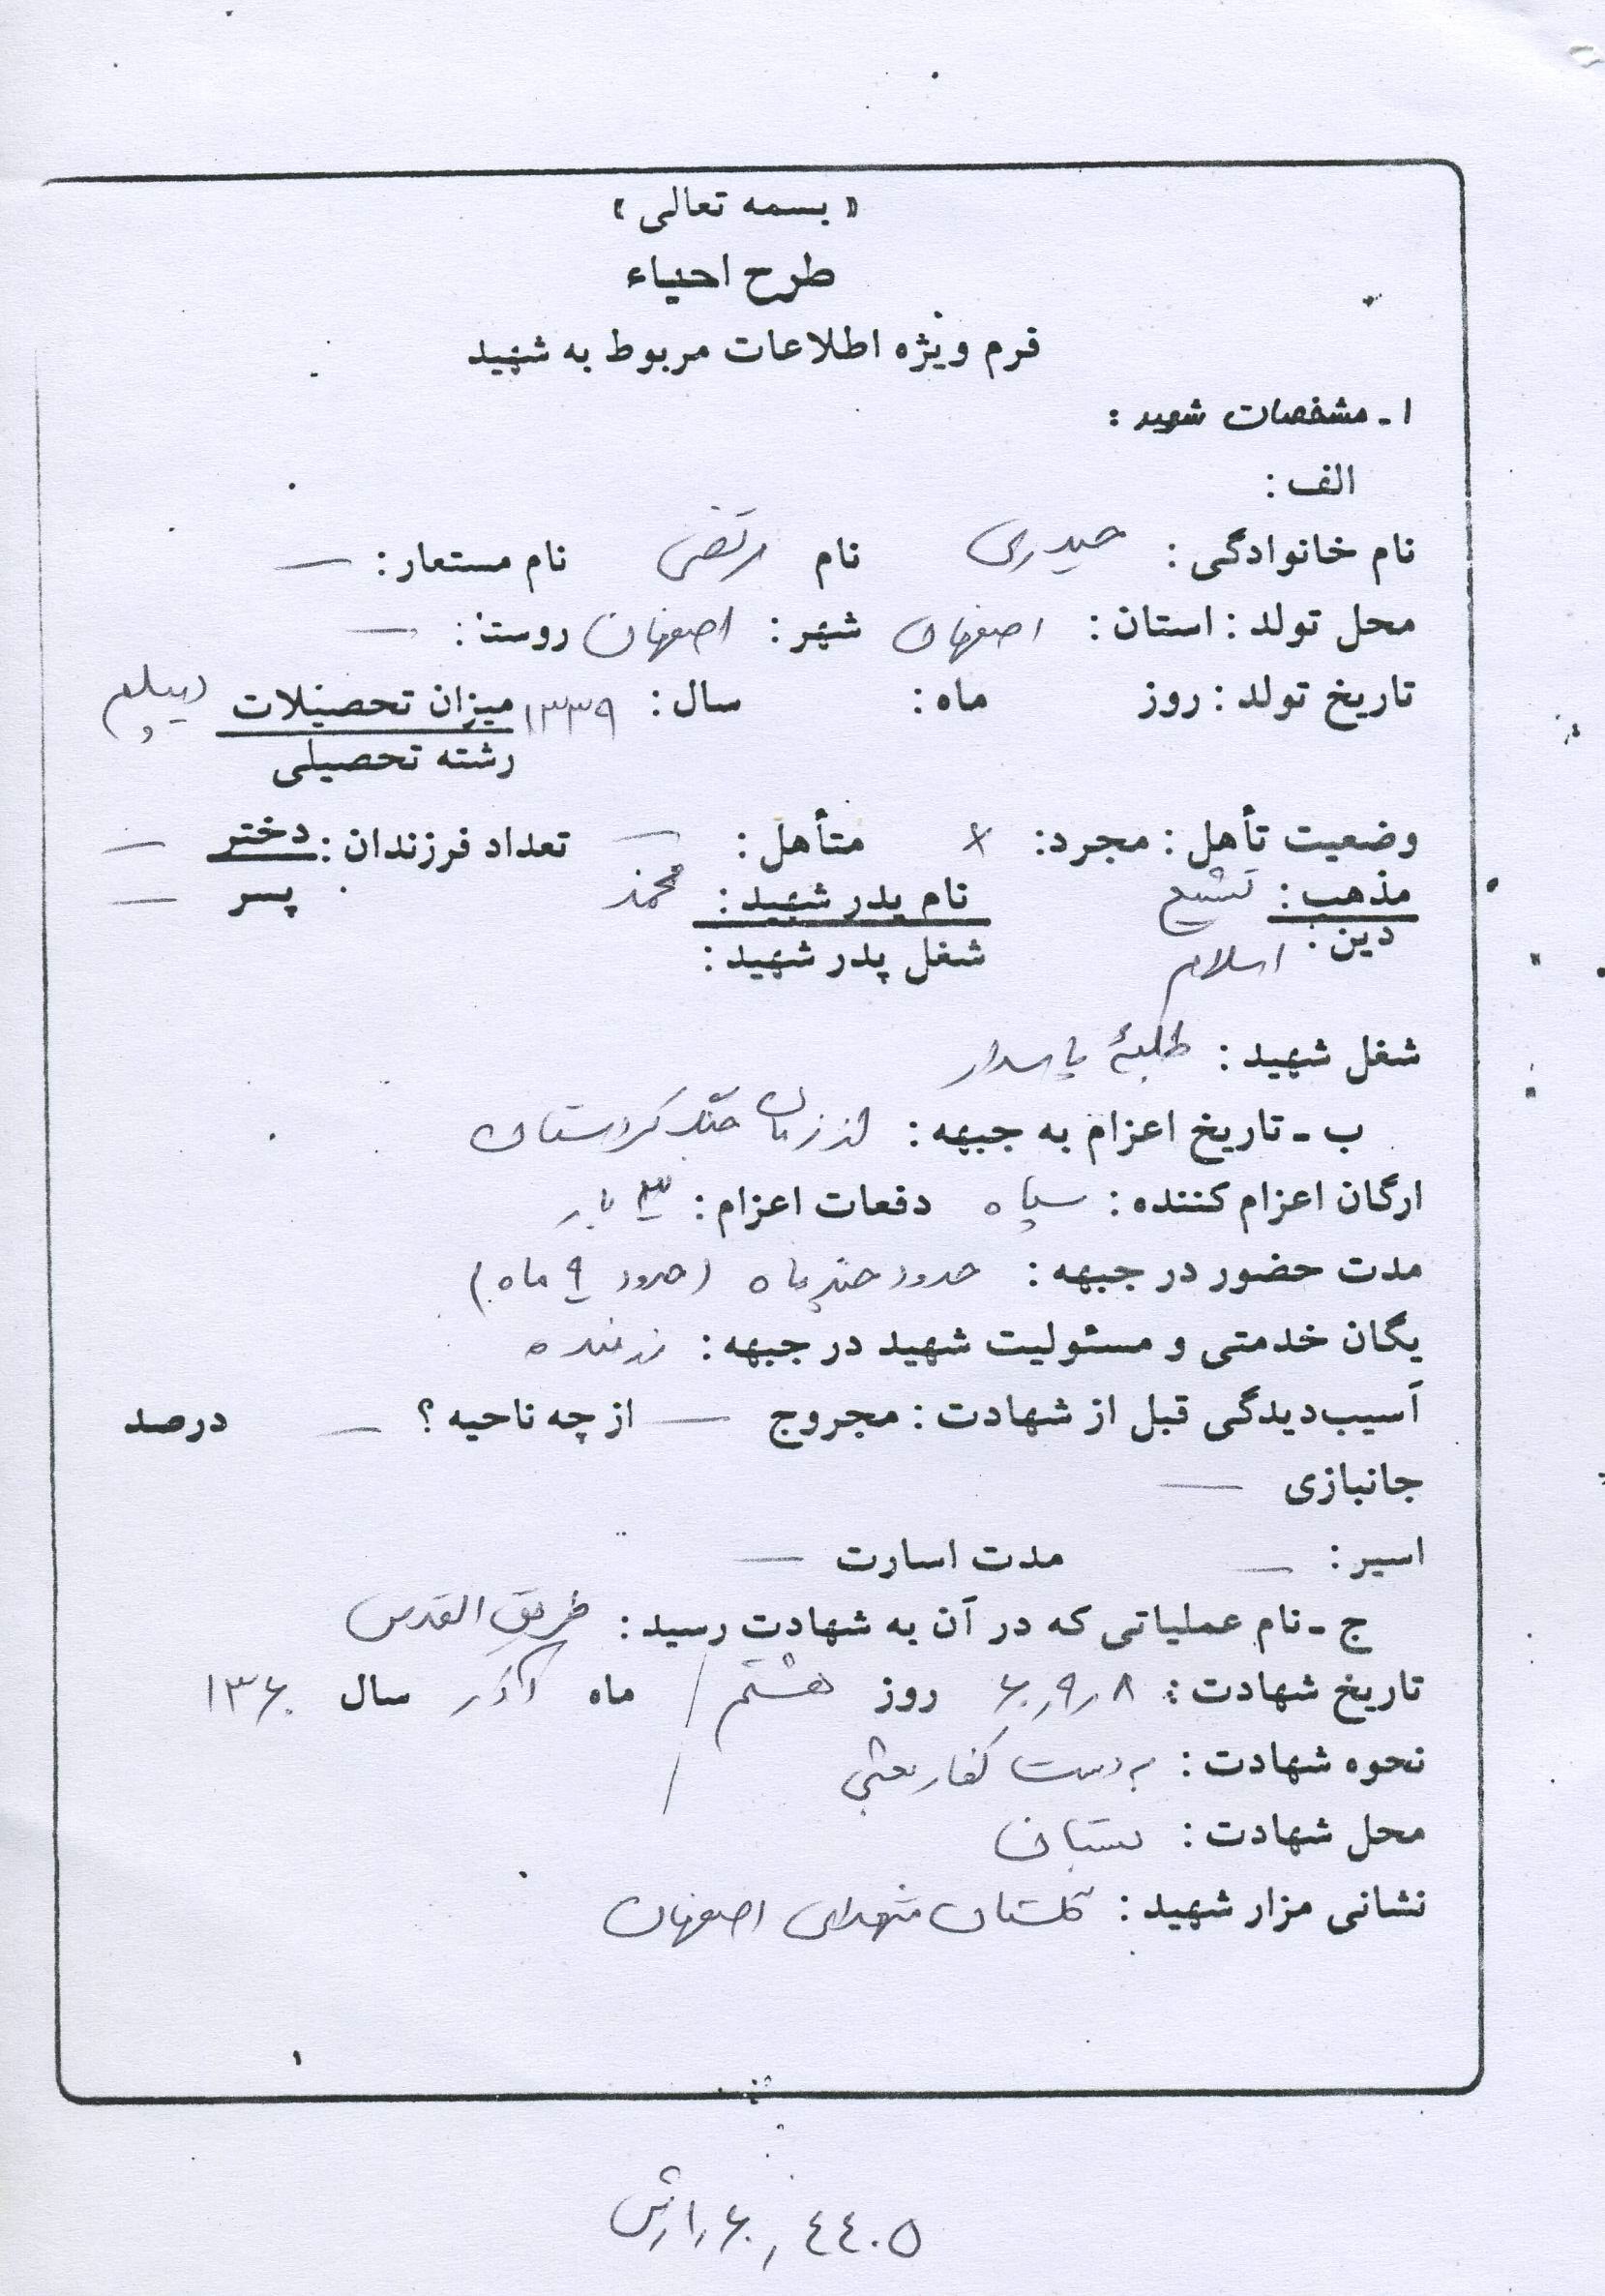 « بسمه تعالی »
طرح احیاء
فرم ویژه اطلاعات مربوط به شهید
۱ـ مشخصات شهید :
الف :
نام خانوادگی : حیدری نام مرتضی نام مستعار : —
محل تولد : استان : اصفهان شهر : اصفهان روستا : —
تاریخ تولد : روز ماه : سال : ۱۳۳۹ میزان تحصیلات دیپلم
رشته تحصیلی
وضعیت تأهل : مجرد : × متأهل : — تعداد فرزندان : دختر —
مذهب : تشیع نام پدر شهید : محمد پسر —
دین : اسلام شغل پدر شهید :
شغل شهید : طلبهٔ پاسدار
ب ـ تاریخ اعزام به جبهه : از زمان جنگ کردستان
ارگان اعزام کننده : سپاه دفعات اعزام : ۳ بار
مدت حضور در جبهه : حدود چند ماه (حدود ۹ ماه)
یگان خدمتی و مسئولیت شهید در جبهه : رزمنده
آسیب‌دیدگی قبل از شهادت : مجروح — از چه ناحیه ؟ — درصد
جانبازی —
اسیر : — مدت اسارت —
ج ـ نام عملیاتی که در آن به شهادت رسید : طریق القدس
تاریخ شهادت : ۶۰٫۹٫۸ روز هشتم / ماه آذر سال ۱۳۶۰
نحوه شهادت : به دست کفار بعثی /
محل شهادت : بستان
نشانی مزار شهید : گلستان شهدای اصفهان
۱